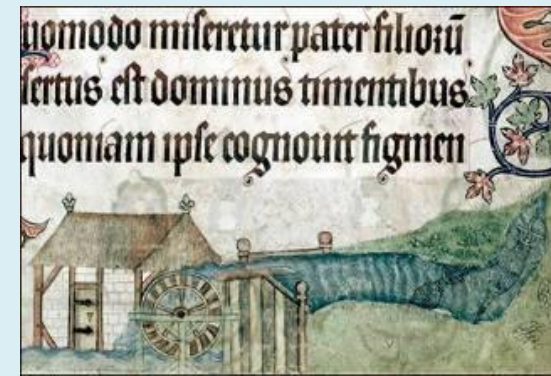 uomodo miseretur pater filiorū
sertus est dominus timentibus
quoniam ipse cognouit figmen